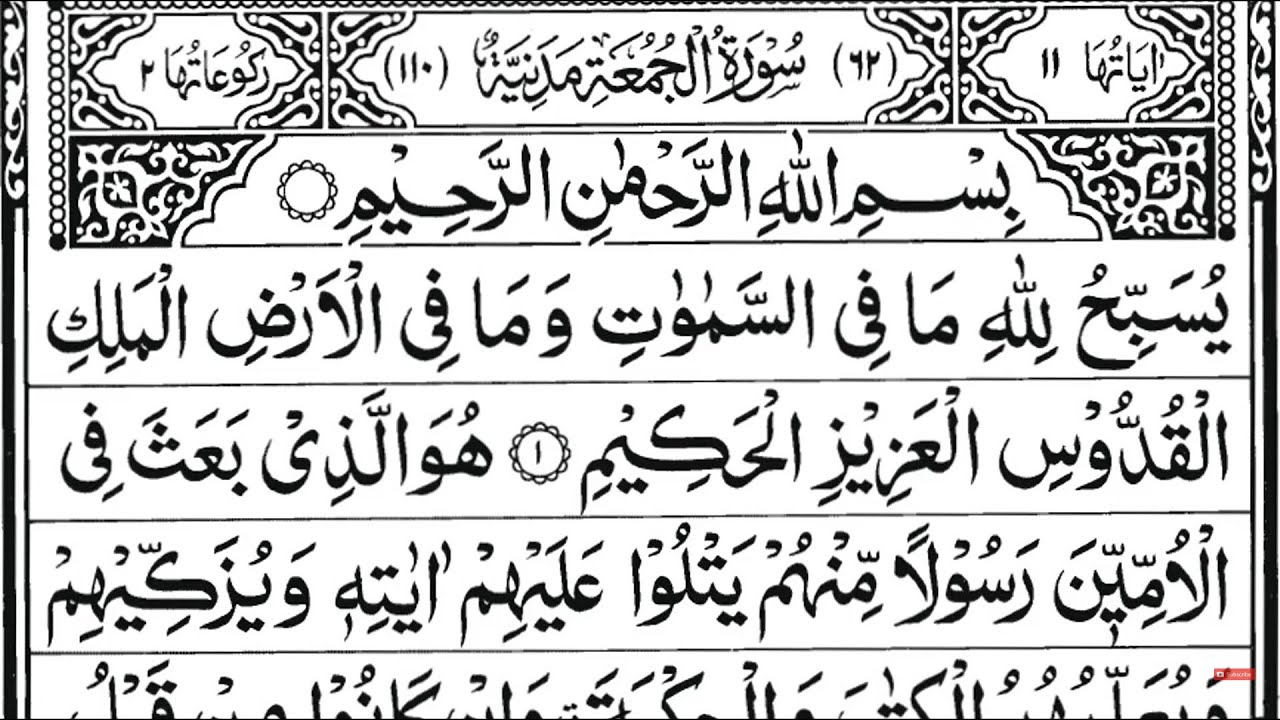 اٰيَاتُهَا ١١ (٦٢) سُوْرَةُ الْجُمُعَةِ مَدَنِيَّةٌ (١١٠) رُكُوْعَاتُهَا ٢
بِسْمِ اللّٰهِ الرَّحْمٰنِ الرَّحِيْمِ
يُسَبِّحُ لِلّٰهِ مَا فِى السَّمٰوٰتِ وَمَا فِى الْاَرْضِ الْمَلِكِ
الْقُدُّوْسِ الْعَزِيْزِ الْحَكِيْمِ ١ هُوَ الَّذِىْ بَعَثَ فِى
الْاُمِّيّٖنَ رَسُوْلًا مِّنْهُمْ يَتْلُوْا عَلَيْهِمْ اٰيٰتِهٖ وَيُزَكِّيْهِمْ
Subscribe